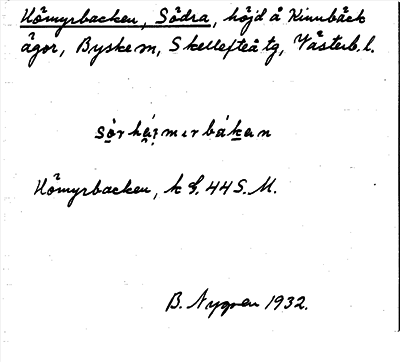 Hömyrbacken, Södra, höjd å Kinnbäck
ägor, Byske sn, Skellefteå tg, Västerb. l.
Hömyrbacken, k 44 S.M.
B. Nygren 1932.